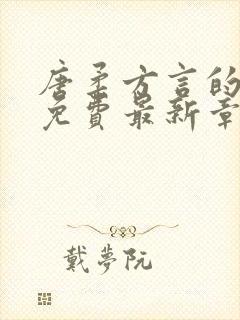 唐柔方言的
免費最新章
戴夢阮